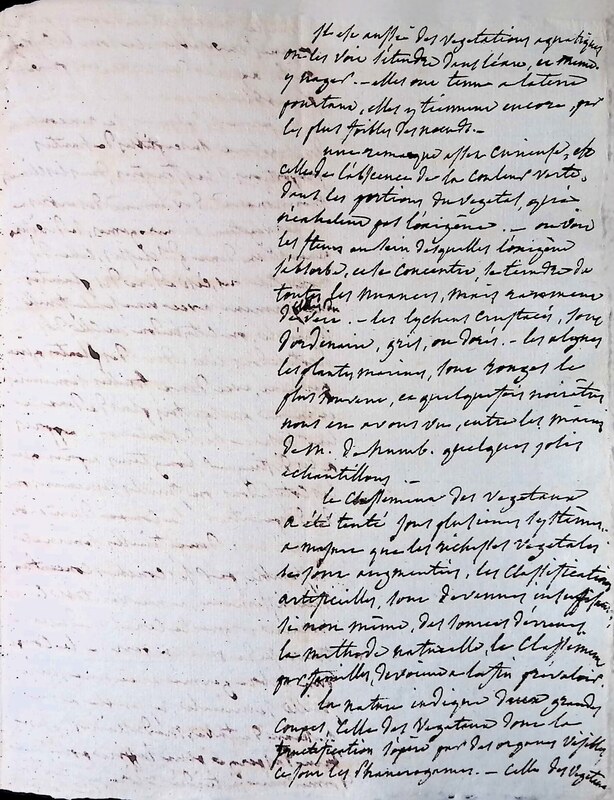 Il est aussi des vegetations aquatiques
on les voit s'étendre dans l'eau, et même
y nager. — elles ont tenu a la terre
pourtant, elles y tiennent encore, par
les plus foibles des nœuds. —
une remarque assez curieuse, est
celle de l'absence de la couleur verte,
dans les portions du vegetal, qui
n'exhalent pas l'oxigène. — on voit
les fleurs au sein desquelles l'oxigène
s'absorbe, et se concentre, se teindre de
toutes les nuances, mais rarement
de vert. — les lychens crustacés, sont
d'ordinaire, gris, ou dorés. — les algues
les plantes marines, sont rouges le
plus souvent, et quelquefois noirâtres
nous en avons vu, entre les mains
de M. de humb. quelques jolis
echantillons. —
le Classement des Vegetaux
a été tenté sous plusieurs systêmes.
a mesure que les richesses vegetales
se sont augmentées, les Classifications
artificielles, sont devenues insuffisantes
si non même, des sources d'erreurs
la methode naturelle, le Classement
par familles, devoient a la fin prévaloir
la nature indique deux grandes
Coupes, Celle des Vegetaux dont la
fructification s'opère par des organes visibles
ce sont les Phanerogames. — Celle des Vegetaux